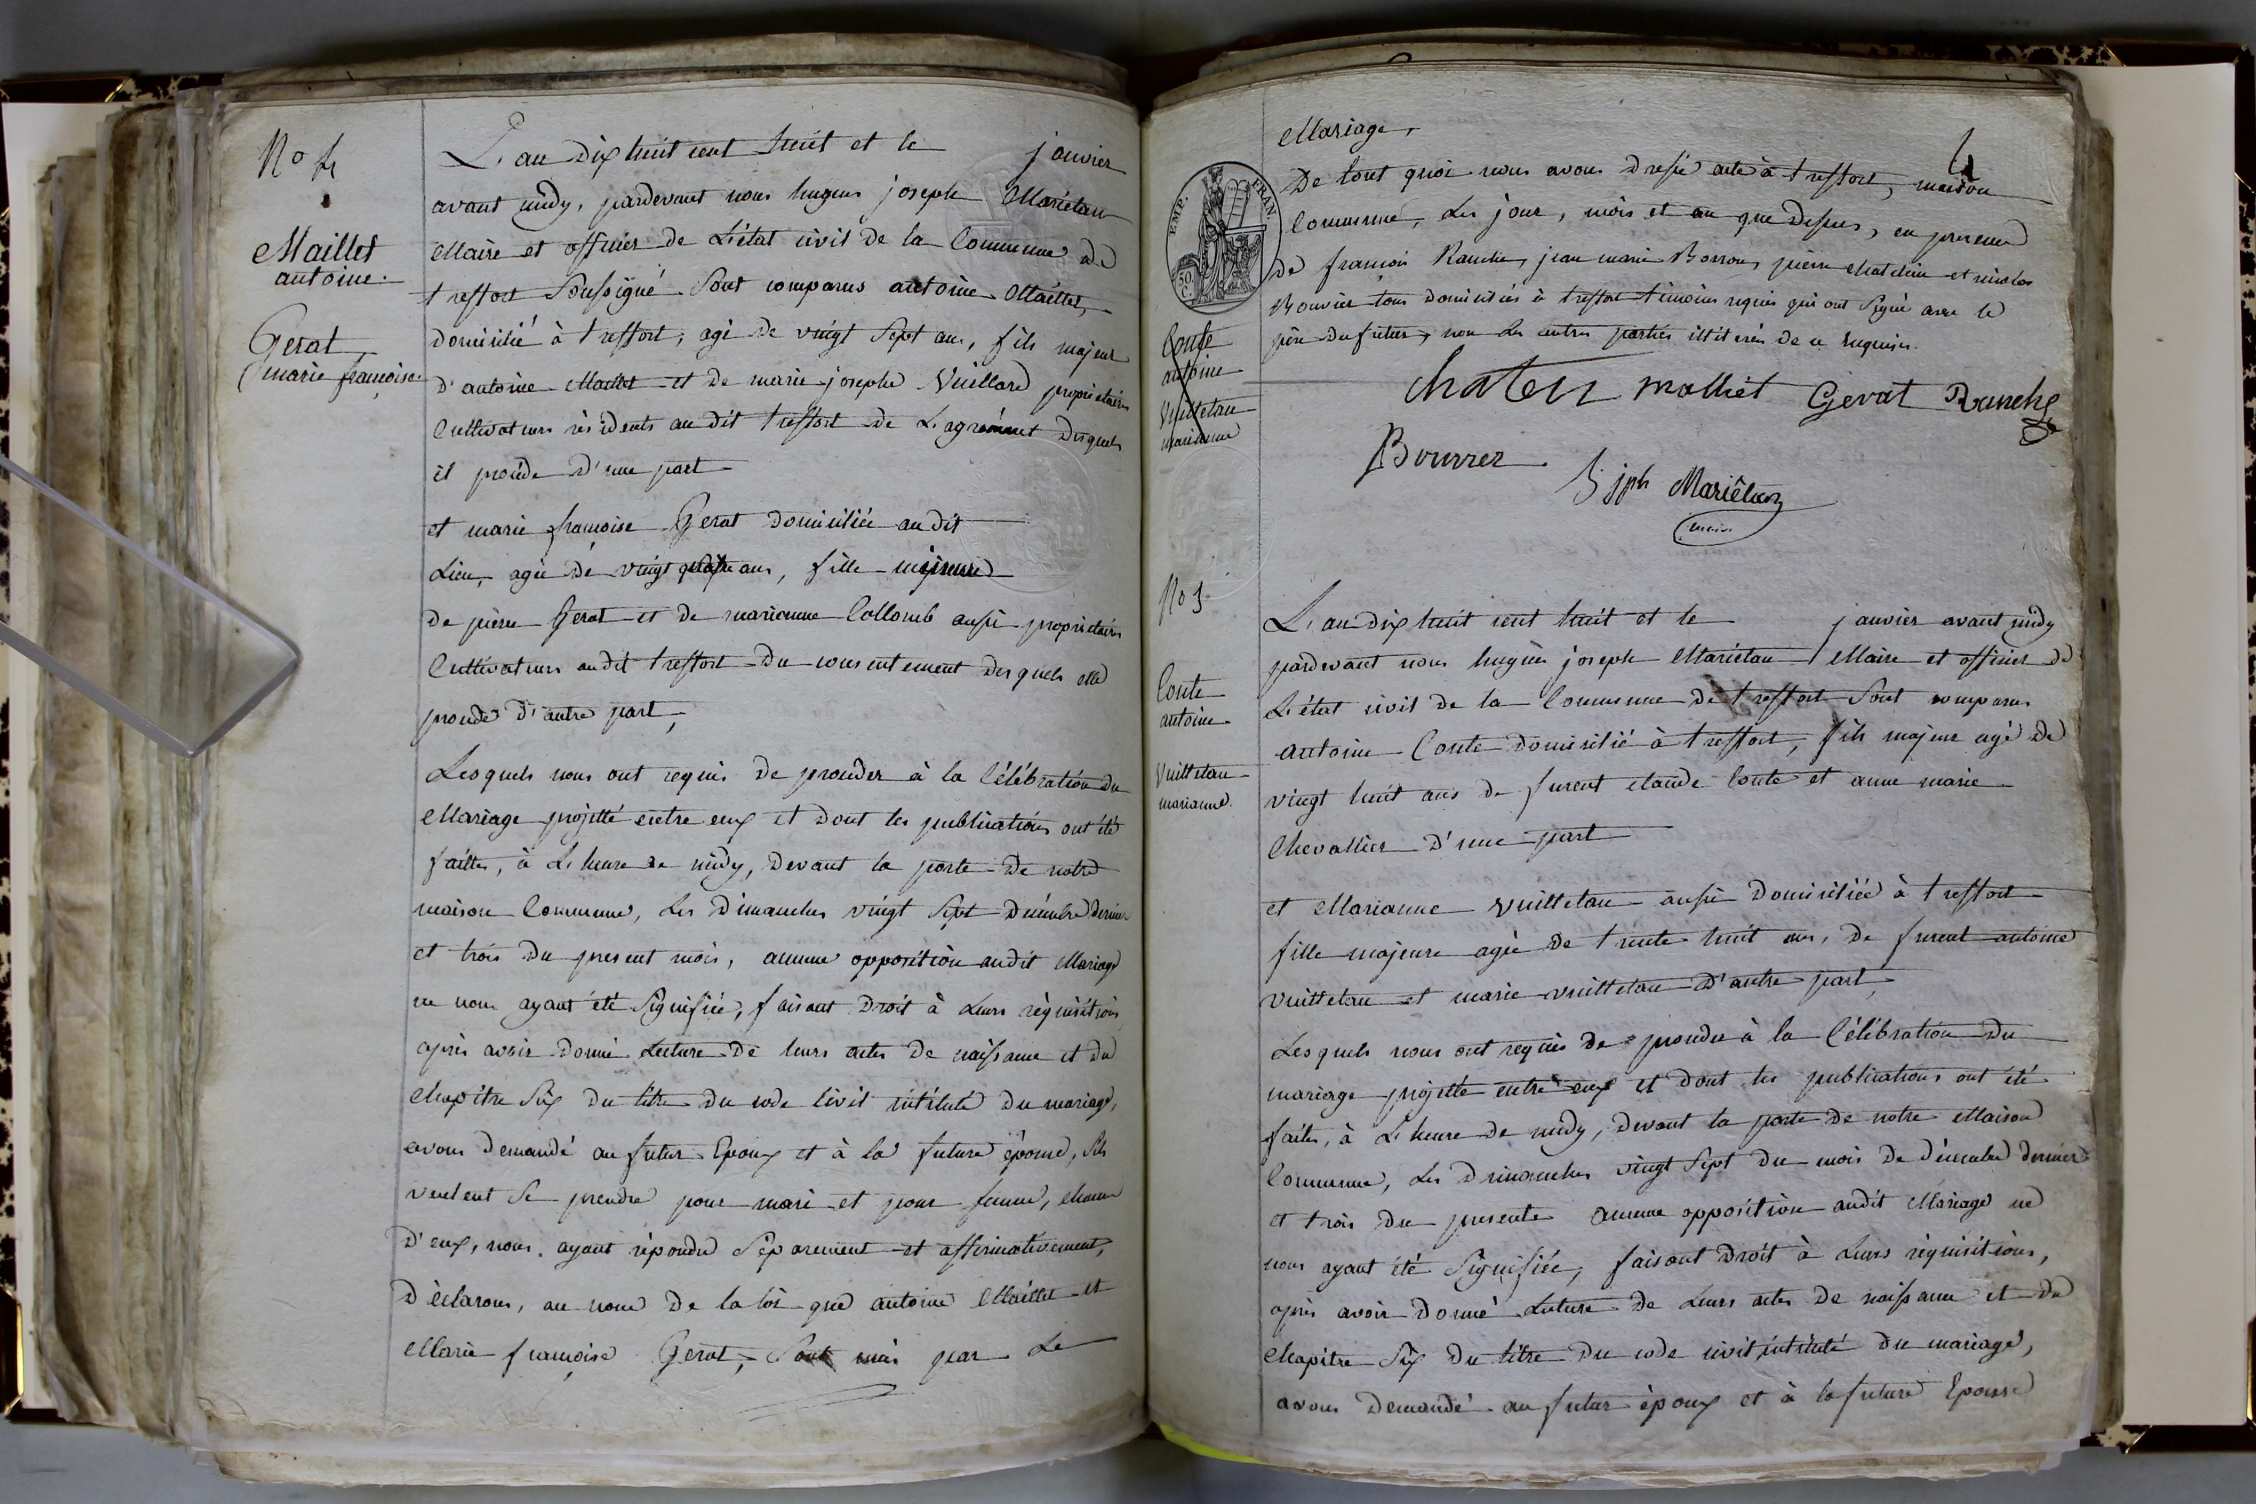 No 4
Maillet
antoine.
Gerat
marie françoise.
L'an dix huit cent huit et le janvier
avant midy, pardevant nous hugues joseph Mariétan
Maire et officier de L'état civil de la Commune de
treffort Soussigné Sont comparus antoine Maillet,
domicilié à treffort, agé de vingt Sept ans, fils majeur
d'antoine Maillet et de marie josephe Vuillard propriétaires
Cultivateurs résidents au dit treffort de L'agrément desquels
il procéde d'une part
et marie françoise Gerat domiciliée au dit
Lieu, agée de vingt ans, fille
de pierre Gerat et de marianne Collomb aussi propriétaires
Cultivateurs audit treffort du consentement desquels elle
procéde d'autre part,
Lesquels nous ont requis de procéder à la Célébration du
Mariage projetté entre eux et dont les publications ont été
faittes, à L'heure de midy, devant la porte de notre
maison Commune, Les dimanches vingt Sept décembre dernier
et trois du present mois, aucune opposition audit Mariage
ne nous ayant été Signifiée, faisant droit à Leurs réquisitions
après avoir donné Lecture de leurs actes de naissance et du
Chapitre Six du titre du code Civil intitulé du mariage,
avons demandé au futur Epoux et à la future épouse, Sils
veulent Se prendre pour mari et pour femme, chacun
d'eux, nous ayant répondu Séparement et affirmativement,
déclarons, au nom de la loi que antoine Maillet et
Marie françoise Gerat, Sont unis par Le
4
Mariage,
De tout quoi nous avons dressé acte à treffort, maison
Commune, Les jour, mois et an que dessus, en presence
de françois Ranche, jean marie Borron, pierre Chatelin et nicolas
Bouvier tous domiciliés à treffort témoins requis qui ont Signé avec le
père du futur, non Les autres parties illitérés de ce enquises.
EMP. FRAN.
Conte
antoine
Vuittetan
marianne
Chaten malliet Gerat Ranche
Bouvier
h jph Mariétan
maire
No 5
Conte
antoine
Vuittetan
marianne.
L'an dix huit cent huit et le janvier avant midy
pardevant nous hugues joseph Mariétan Maire et officier de
L'état civil de la Commune de treffort Sont comparus
antoine Conte domicilié à treffort, fils majeur agé de
vingt huit ans de furent claude Conte et anne marie
Chevallier d'une part
et Marianne Vuittetan aussi domiciliée à treffort
fille majeure agée de trente huit ans, de furent antoine
Vuittetan et marie vuittetan d'autre part,
Lesquels nous ont requis de procéder à la Célébration du
mariage projetté entre eux et dont les publications ont été
faites, à L'heure de midy, devant la porte de notre Maison
Commune, Les dimanches vingt Sept du mois de décembre dernier
et trois du presente aucune opposition audit Mariage ne
nous ayant été Signifiée, faisant droit à Leurs réquisitions,
après avoir donné Lecture de Leurs actes de naissance et du
Chapitre Six du titre du code civil intitulé du mariage,
avons demandé au futur époux et à la future Epouse